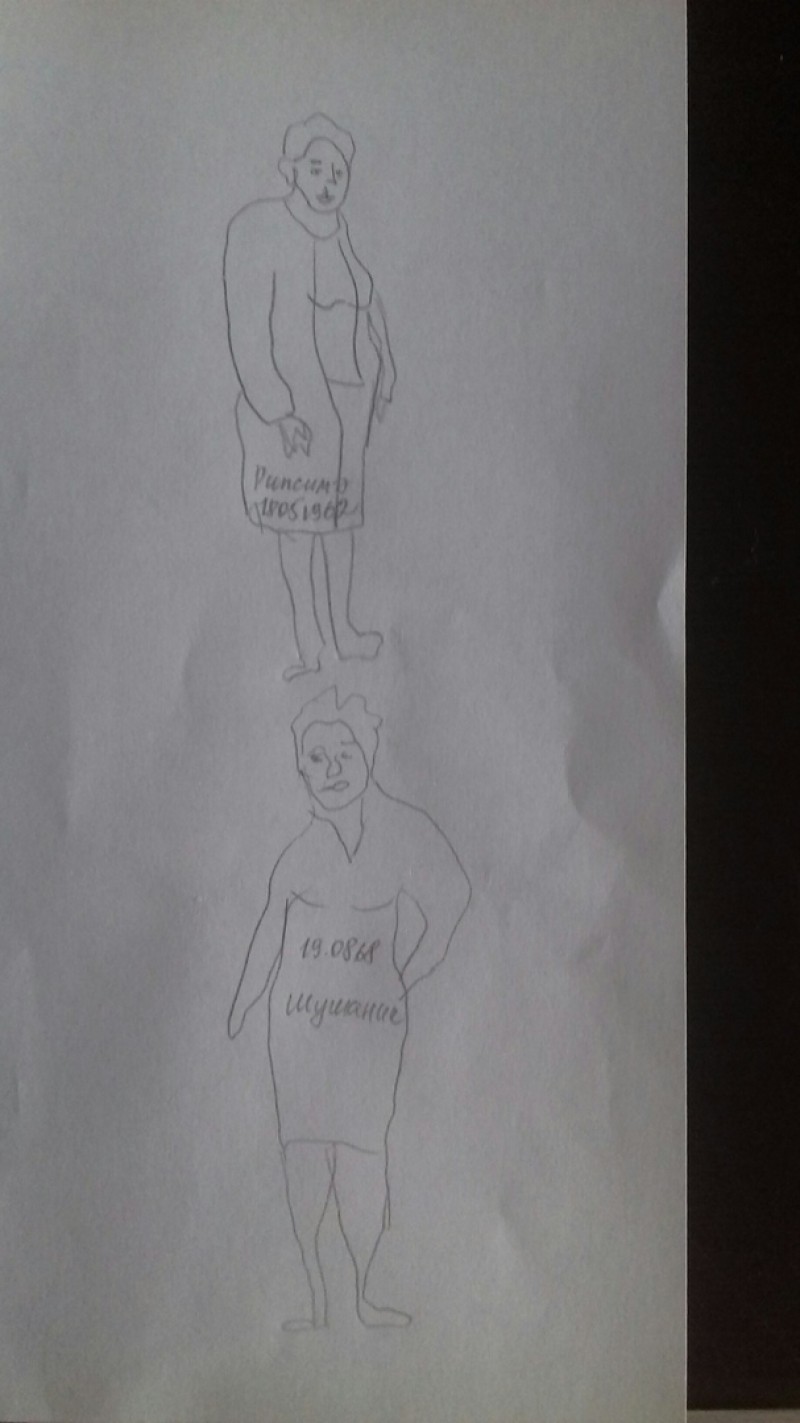 Рипсимэ
18051962
19.0868
Шушаник